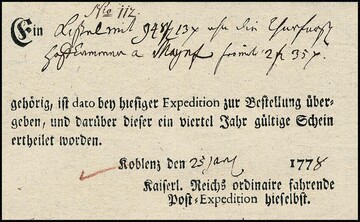 No 117.
Ein Kistel mit 948 f 13 x an die Churfürst
Hofkammer a Maynz 2 f 35 x.
gehörig, ist dato bey hiesiger Expedition zur Bestellung über-
geben, und darüber dieser ein viertel Jahr gültige Schein
ertheilet worden.
Koblenz den 25 1778
Kaiserl. Reichs ordinaire fahrende
Post-Expedition hieselbst.